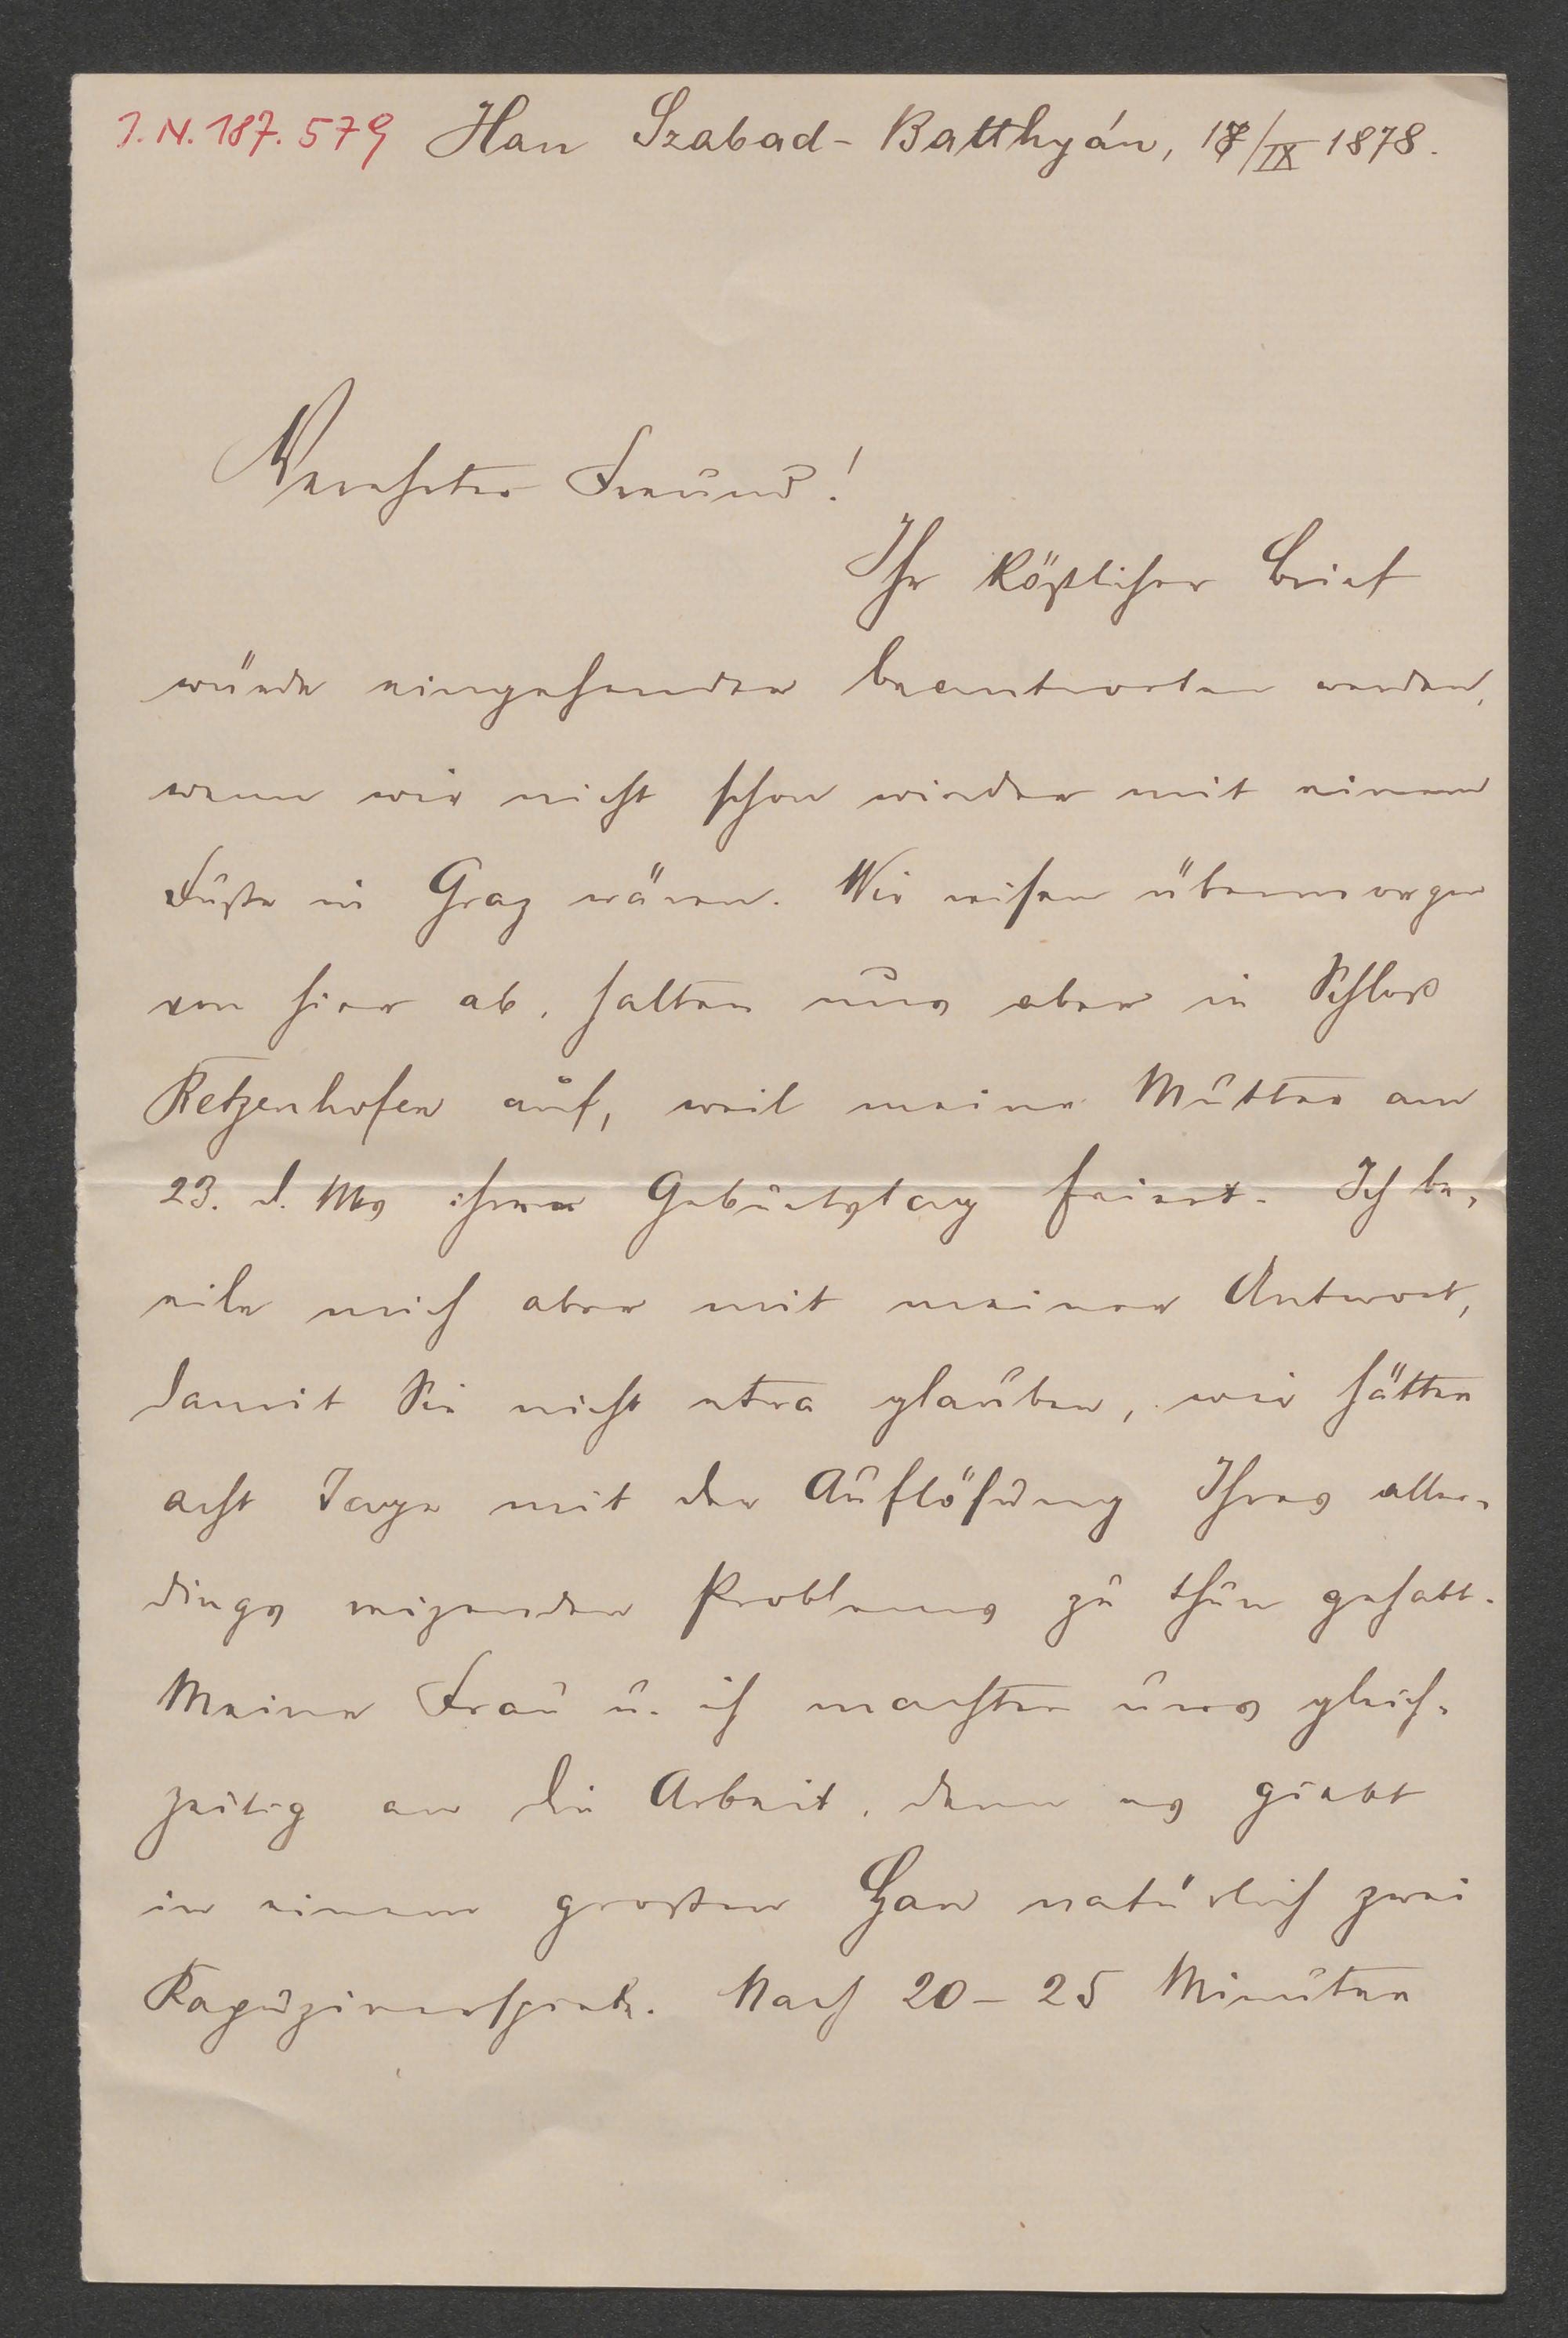 I.N. 187.579 Han Szabad-Batthyán, 17/IX 1878.
Verehrter Freund!
Ihr köstlicher Brief
würde eingehender beantwortet werden,
wenn wir nicht schon wieder mit einem
Fuße in Graz wären. Wir reisen übermorgen
von hier ab, halten uns aber in Schloß
Retzenhofen auf, weil meine Mutter am
23. d. Mts ihren Geburtstag feiert. Ich be-
eile mich aber mit meiner Antwort,
damit Sie nicht etwa glauben, wir hätten
acht Tage mit der Auflösung Ihres aller-
dings reizenden Problems zu thun gehabt.
Meine Frau u. ich machten uns gleich-
zeitig an die Arbeit, denn es giebt
in einem großen Han natürlich zwei
Kapuzinerspiele. Nach 20-25 Minuten